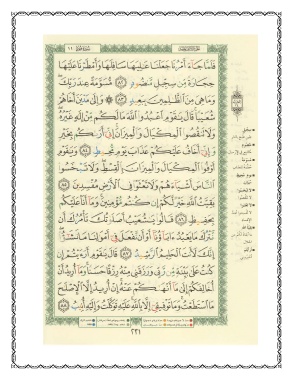 فَلَمَّا جَاءَ أَمْرُنَا جَعَلْنَا عَالِيَهَا سَافِلَهَا وَأَمْطَرْنَا عَلَيْهَا
حِجَارَةً مِّن سِجِّيلٍ مَّنضُودٍ ٨٢ مُّسَوَّمَةً عِندَ رَبِّكَ
وَمَا هِيَ مِنَ الظَّالِمِينَ بِبَعِيدٍ ٨٣ وَإِلَىٰ مَدْيَنَ أَخَاهُمْ
شُعَيْبًا قَالَ يَا قَوْمِ اعْبُدُوا اللَّهَ مَا لَكُم مِّنْ إِلَٰهٍ غَيْرُهُ
وَلَا تَنقُصُوا الْمِكْيَالَ وَالْمِيزَانَ إِنِّي أَرَاكُم بِخَيْرٍ
وَإِنِّي أَخَافُ عَلَيْكُمْ عَذَابَ يَوْمٍ مُّحِيطٍ ٨٤ وَيَا قَوْمِ
أَوْفُوا الْمِكْيَالَ وَالْمِيزَانَ بِالْقِسْطِ وَلَا تَبْخَسُوا
النَّاسَ أَشْيَاءَهُمْ وَلَا تَعْثَوْا فِي الْأَرْضِ مُفْسِدِينَ ٨٥
بَقِيَّتُ اللَّهِ خَيْرٌ لَّكُمْ إِن كُنتُم مُّؤْمِنِينَ وَمَا أَنَا عَلَيْكُم
بِحَفِيظٍ ٨٦ قَالُوا يَا شُعَيْبُ أَصَلَاتُكَ تَأْمُرُكَ أَن
نَّتْرُكَ مَا يَعْبُدُ آبَاؤُنَا أَوْ أَن نَّفْعَلَ فِي أَمْوَالِنَا مَا نَشَاءُ
إِنَّكَ لَأَنتَ الْحَلِيمُ الرَّشِيدُ ٨٧ قَالَ يَا قَوْمِ أَرَأَيْتُمْ إِن
كُنتُ عَلَىٰ بَيِّنَةٍ مِّن رَّبِّي وَرَزَقَنِي مِنْهُ رِزْقًا حَسَنًا وَمَا أُرِيدُ أَنْ
أُخَالِفَكُمْ إِلَىٰ مَا أَنْهَاكُمْ عَنْهُ إِنْ أُرِيدُ إِلَّا الْإِصْلَاحَ
مَا اسْتَطَعْتُ وَمَا تَوْفِيقِي إِلَّا بِاللَّهِ عَلَيْهِ تَوَكَّلْتُ وَإِلَيْهِ أُنِيبُ ٨٨
٢٣١